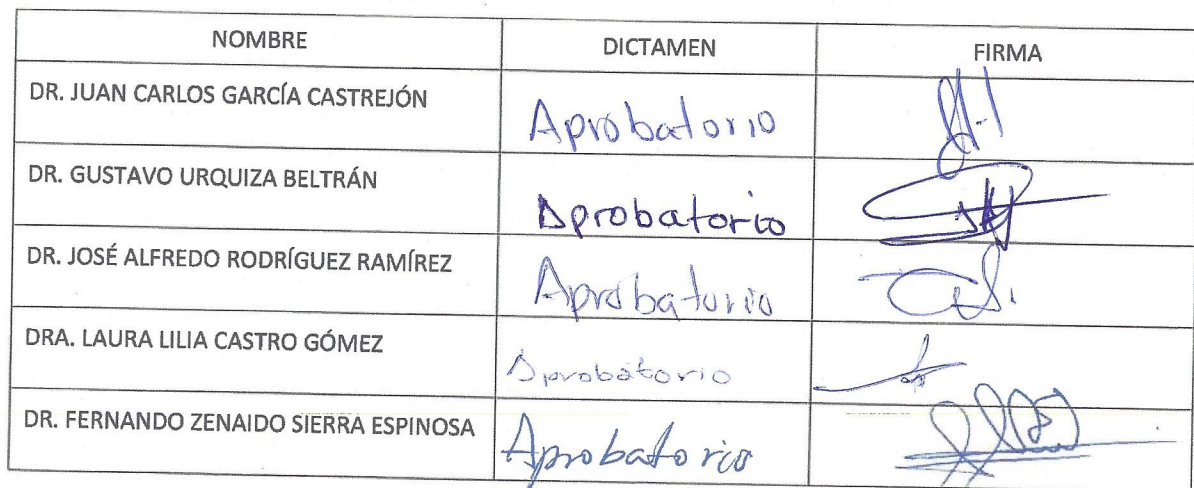 NOMBRE DICTAMEN FIRMA
DR. JUAN CARLOS GARCÍA CASTREJÓN Aprobatorio
DR. GUSTAVO URQUIZA BELTRÁN Aprobatorio
DR. JOSÉ ALFREDO RODRÍGUEZ RAMÍREZ Aprobatorio
DRA. LAURA LILIA CASTRO GÓMEZ Aprobatorio
DR. FERNANDO ZENAIDO SIERRA ESPINOSA Aprobatorio